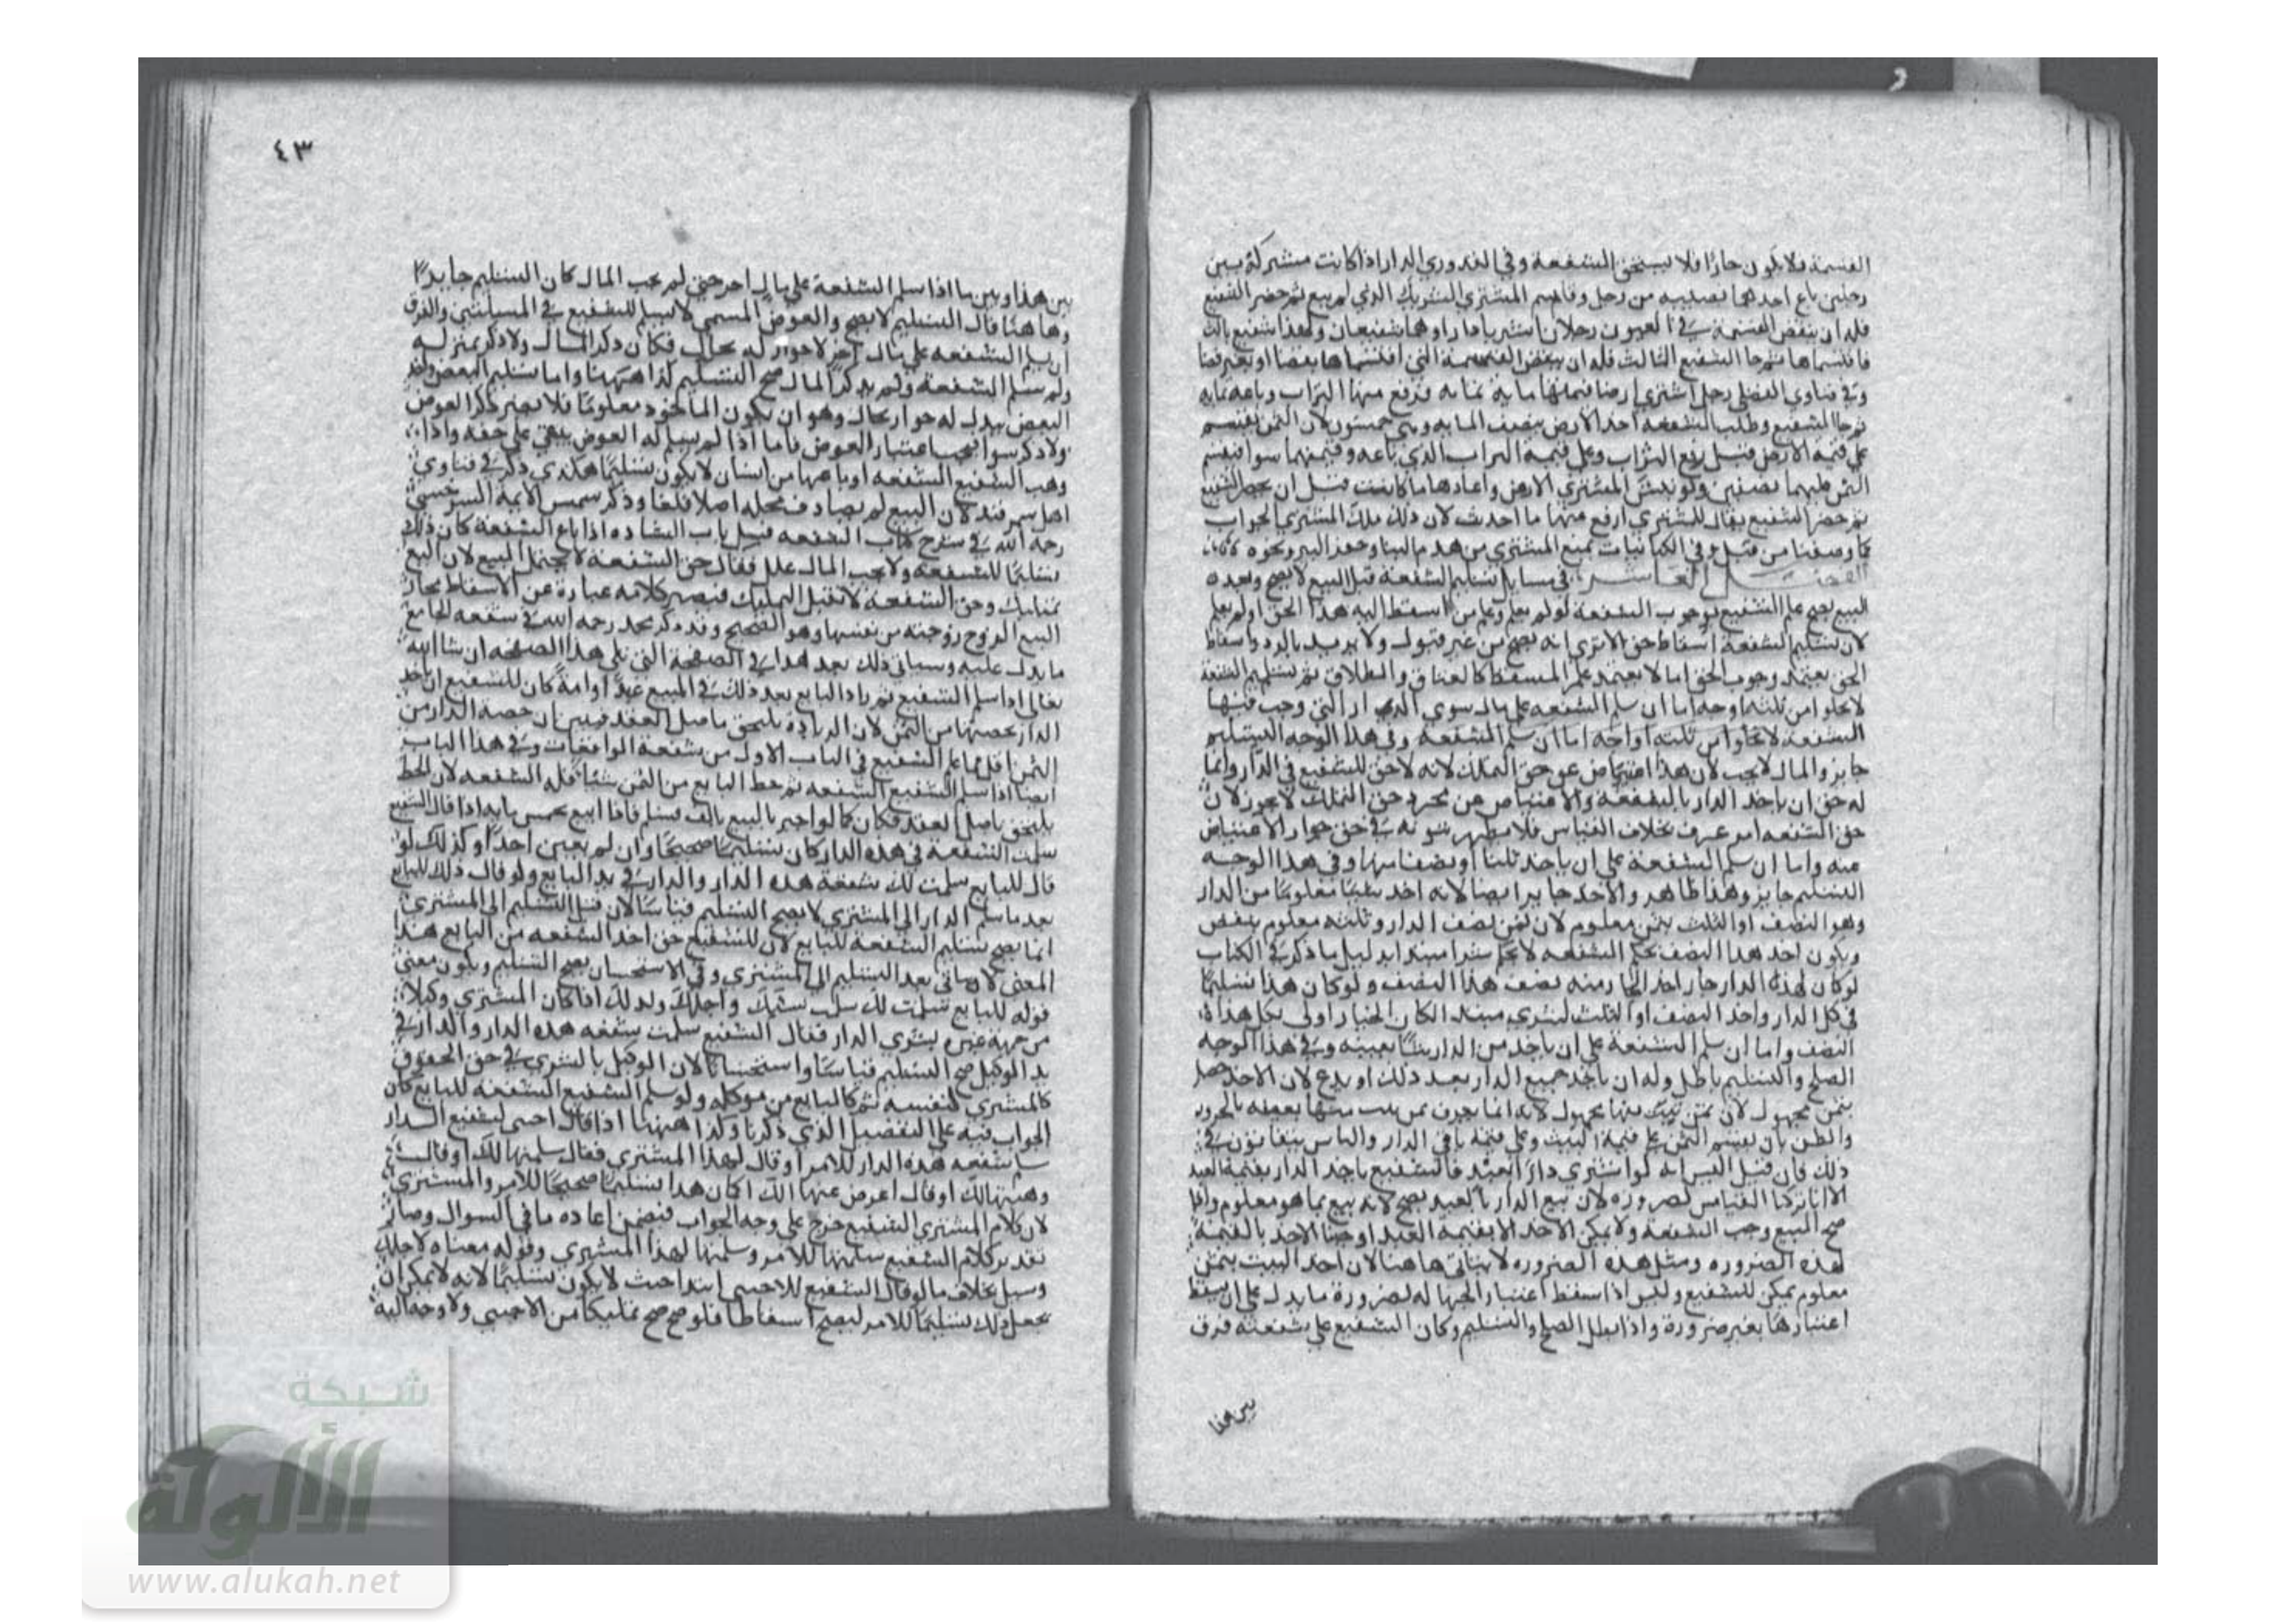 القسمة فلا يكون جارا فلا يستحق الشفعة وفي القدوري الدار اذا كانت مشتركة بين
رجلين باع احدهما نصيبه من رجل وقاسم المشتري الشريك الذي لم يبع ثم حضر الشفيع
فله ان ينقض القسمة في العيون رجلان اشتريا دارا وهما شفيعان ولهذا شفيع ثالث
فاقتسماها ثم جا الشفيع الثالث فله ان ينقض القسمة التي اقتسماها بقضا او بغير قضا
وفي فتاوي الفضلي رجل اشتري ارضا قيمتها ماية بماية فرفع منها التراب وباعه بماية
ثم جا الشفيع وطلب الشفعة اخذ الارض بنصف الماية وهي خمسون لان الثمن يقسم
علي قيمة الارض قبل رفع التراب وعلي قيمة التراب الذي باعه وقيمتهما سوا فيقسم
الثمن عليهما نصفين ولو كبس المشتري الارض واعادها ما كانت قبل ان يحضر الشفيع
ثم حضر الشفيع يقال للمشتري ارفع منها ما احدثت لان ذلك ملك المشتري الجواب
كما وصفنا من قبل في الكتابيات يمنع المشتري من هدم البنا وحفر البير ونحوه
الفصل العاشر في مسايل تسليم الشفعة قبل البيع لا يصح وبعده
البيع يصح علم الشفيع بوجوب الشفعة او لم يعلم وعلم من اسقط اليه هذا الحق او لم يعلم
لان تسليم الشفعة اسقاط حق الا تري انه يصح من غير قبول ولا يرتد بالرد واسقاط
الحق يعتمد وجوب الحق اما لا يعتمد علم المسقط كالعتاق والطلاق ثم تسليم الشفعة
لا يخلوا من ثلثة اوجه اما ان سلم الشفعة علي مال سوي الدار التي وجب فيها
الشفعة لا يخلوا من ثلثة اواجه اما ان سلم الشفعة وفي هذا الوجه التسليم
جايز والمال لا يجب لان هذا اعتياض عن حق التملك لانه لا حق للشفيع في الدار وانما
له حق ان ياخذ الدار بالشفعة والاعتياض عن مجرد حق التملك لا يجوز لان
حق الشفعة امر عرف بخلاف القياس فلا يظهر ثبوته في حق جواز الاعتياض
عنه واما ان سلم الشفعة علي ان ياخذ ثلثا او نصفا منها وفي هذا الوجه
التسليم جايز وهذا ظاهر والاخذ جايز ايضا لانه اخذ شيئا معلوما من الدار
وهو النصف او الثلث بثمن معلوم لان ثمن نصف الدار وثلثه معلوم
ويكون اخذ هذا النصف بحكم الشفعة لا بحكم شرا مبتدا بدليل ما ذكر في الكتاب
لو كان لهذه الدار جار اخذ الجار منه نصف هذا النصف ولو كان هذا تسليما
في كل الدار واخذ النصف او الثلث بشري مبتدا لكان الجار اولي بكل هذا
النصف واما ان سلم الشفعة علي ان ياخذ من الدار بيتا بعينه وفي هذا الوجه
الصلح والتسليم باطل وله ان ياخذ جميع الدار بعد ذلك او يدع لان الاخذ حصل
بثمن مجهول لان ثمن بيت منها مجهول لانه انما يعرف ثمن بيت منها بعينه بالحزر
والظن بان يقسم الثمن علي قيمة البيت وعلي قيمة باقي الدار والناس يتفاوتون في
ذلك فان قيل اليس انه لو اشتري دارا بعبد فالشفيع ياخذ الدار بقيمة العبد
الا انا تركنا القياس لضرورة لان بيع الدار بالعبد يصح لانه بيع بما هو معلوم واذا
صح البيع وجب الشفعة ولا يمكن الاخذ الا بقيمة العبد اوجبنا الاخذ بالقيمة
لهذه الضرورة ومثل هذه الضرورة لا يتاتي هاهنا لان اخذ البيت بثمن
معلوم يمكن للشفيع وليس اذا سقط اعتبار الجهالة لضرورة ما يدل علي ان يسقط
اعتبارها بغير ضرورة واذا بطل الصلح والتسليم وكان الشفيع علي شفعته فرق
بين هذا
٤٣
بين هذا وبين ما اذا سلم الشفعة علي مال اخر حتي لم يجب المال كان التسليم جايزا
وها هنا قال التسليم لا يصح والعوض المسمي لا يسلم للشفيع في المسيلتين والفرق
ان سلم الشفعة علي مال اخر لا جواز له بحال فكان ذكر المال ولا ذكر بمنزلة
ولم سلم الشفعة ولم يذكر المال صح التسليم كذا ههنا واما تسليم البعض واخذ
البعض بدل له جواز بحال وهو ان يكون الماخوذ معلوما فلا يصير ذكر العوض
ولا ذكر سوا فيجب اعتبار العوض فاما اذا لم يسلم له العوض يبقي علي حقه واذا
وهب الشفيع الشفعة او باعها من انسان لا يكون تسليما هكذي ذكر في فتاوي
اهل سمرقند لان البيع لم يصادف محله اصلا فلغا وذكر شمس الايمة السرخسي
رحمه الله في شرح كتاب الشفعة قبيل باب الشهادة اذا باع الشفعة كان ذلك
تسليما للشفعة ولا يجب المال علل فقال حق الشفعة لا يحتمل البيع لان البيع
تمليك وحق الشفعة لا تقبل التمليك فيصير كلامه عبارة عن الاسقاط مجاز
البيع الزوج زوجته من نفسها وهو الصحيح وقد ذكر محمد رحمه الله في شفعة الجامع
ما يدل عليه وسياتي ذلك بعد هذا في الصفحة التي تلي هذا الصفحة ان شا الله
تعالي اذا سلم الشفيع ثم زاد البايع بعد ذلك في المبيع عبدا او امة كان للشفيع ان ياخذ
الدار بحصتها من الثمن لان الزيادة يلتحق باصل العقد فيتبين ان حصة الدار من
الثمن اقل مما علم الشفيع في الباب الاول من شفعة الواقعات وفي هذا الباب
ايضا اذا سلم الشفيع الشفعة ثم حط البايع من الثمن شيئا فله الشفعة لان الحط
يلتحق باصل العقد فكان كما لو اخبر بالبيع بالف فسلم فاذا البيع بخمس ماية اذا قال الشفيع
سلمت الشفعة في هذه الدار كان تسليما صحيحا وان لم يعين احدا وكذلك لو
قال للبايع سلمت لك شفعة هذه الدار والدار في يد البايع ولو قال ذلك للبايع
بعد ما سلم الدار الي المشتري لا يصح التسليم قياسا لان قبل التسليم الي المشتري
انما يصح تسليم الشفعة للبايع لان للشفيع حق اخذ الشفعة من البايع هذا
المعني لا يتاتي بعد التسليم الي المشتري وفي الاستحسان يصح التسليم ويكون معني
قوله للبايع سلمت لك سلمت بسببك ولاجلك وكذلك اذا كان المشتري وكيلا
من جهة غيره بشري الدار فقال الشفيع سلمت شفعة هذه الدار والدار في
يد الوكيل صح التسليم قياسا واستحسانا لان الوكيل بالشري في حق الحقوق
كالمشتري لنفسه ثم كالبايع من موكله ولو سلم الشفيع الشفعة للبايع كان
الجواب فيه علي التفصيل الذي ذكرنا وكذا ههنا اذا قال اجنبي لشفيع الدار
سلم شفعة هذه الدار للامر او قال لهذا المشتري فقال سلمتها لك او قال
وهبتها لك او قال اعرض عنها لك كان هذا تسليما صحيحا للامر والمشتري
لان كلام المشتري الشفيع خرج علي وجه الجواب فيضمن اعادة ما في السوال وصار
تقدير كلام الشفيع سلمتها للامر وسلمتها لهذا المشتري وقوله معناه لاجلك
وسبل بخلاف ما لو قال الشفيع للاجنبي ابتدا حيث لا يكون تسليما لانه لا يمكن ان
يجعل ذلك تسليما للامر ليصح اسقاطا فلو صح صح تمليكا من الاجنبي ولا وجه اليه
شبكة
الألوكة
www.alukah.net